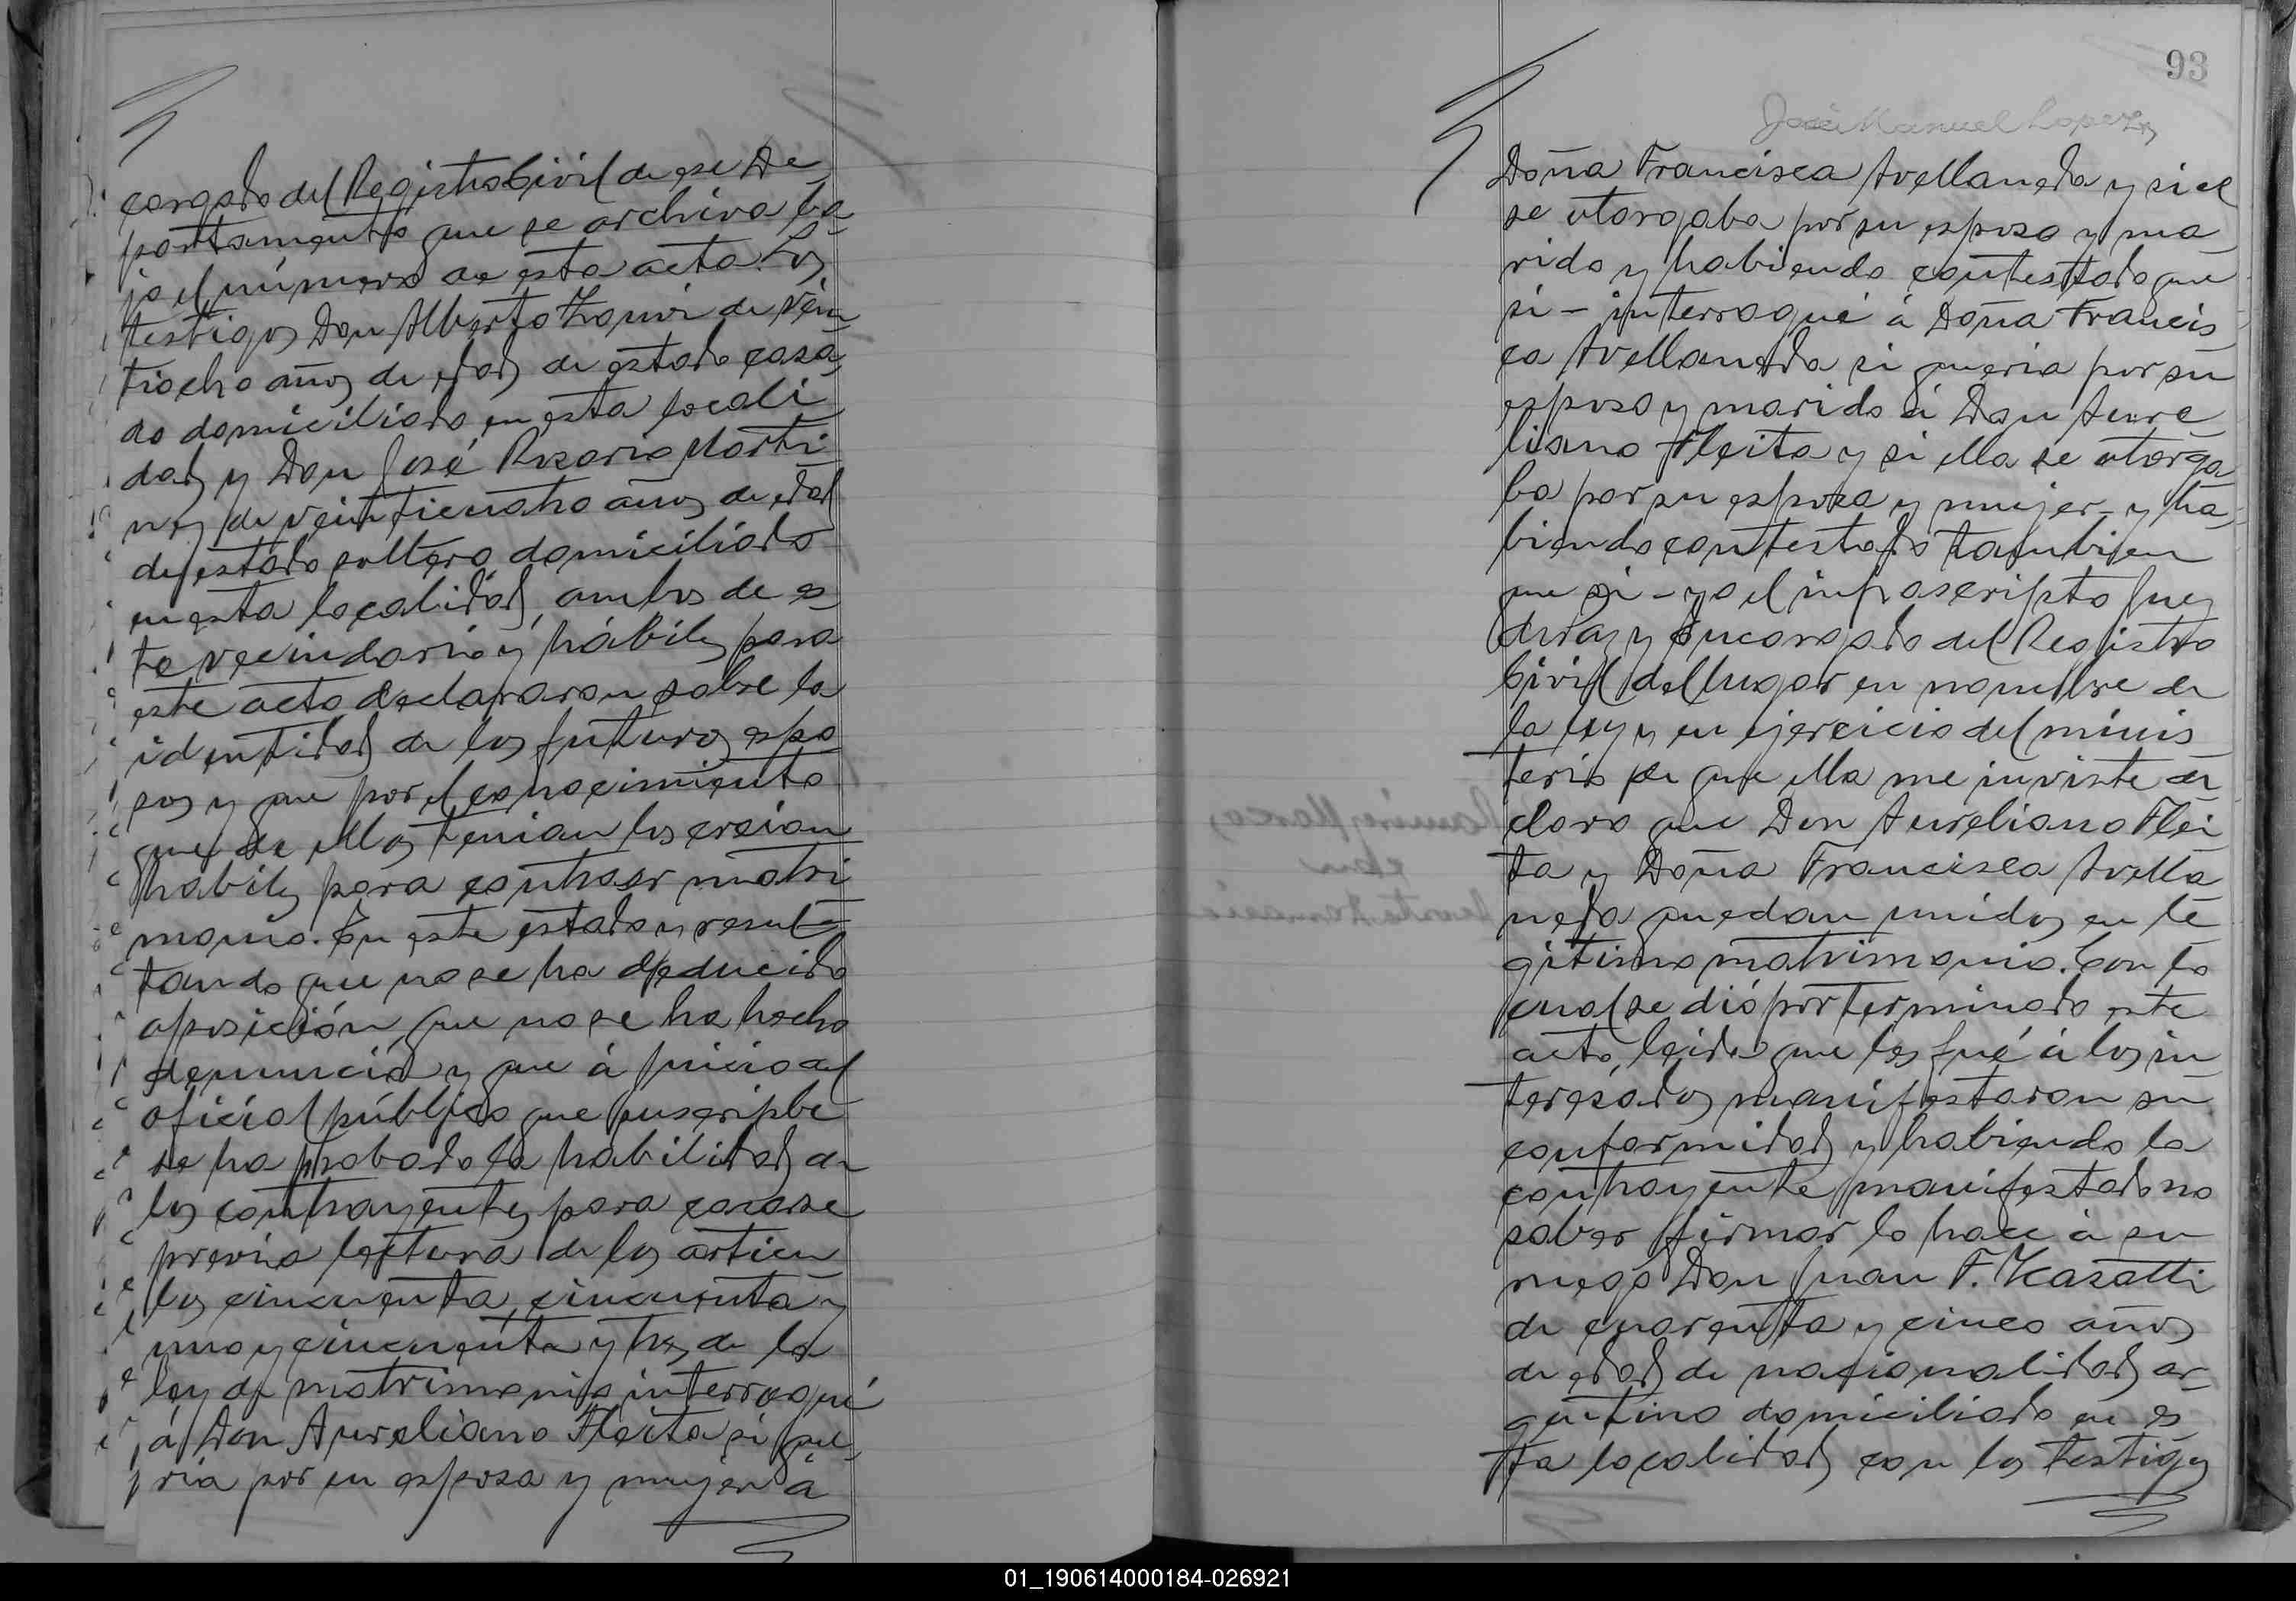 cargado del Registro Civil de ese De
partamento que se archiva ba
jo el número de esta acta. Los
testigos Don Alberto de vein
tiocho años de edad de estado casa
do domiciliado en esta locali
dad y Don José Rosario Marti
nez de veinticuatro años de edad
de estado soltero domiciliado
en esta localidad, ambos de es
te vecindario y hábiles para
este acto declararon sobre la
identidad de los futuros espo
sos y que por el conocimiento
que de ellos tenian los creian
habiles para contraer matri
monio. En este estado y resul
tando que no se ha deducido
oposición, que no se ha hecho
denuncia y que á juicio del
oficial público que suscribe
se ha probado la habilidad de
los contrayentes para casarse
previa lectura de los articu
los cincuenta, cincuenta y
uno y cincuenta y tres de la
ley de matrimonio interrogué
á Don Aureliano Fleita si que
ria por su esposa y mujer á
93
José Manuel Lopez
Doña Francisca Avellaneda y si el
se otorgaba por su esposo y ma
rido y habiendo contestado que
si - interrogué á Doña Francis
ca Avellaneda si queria por su
esposo y marido á Don Aure
liano Fleita y si ella se otorga
ba por su esposa y mujer - y ha
biendo contestado tambien
que si - yo el infrascripto Juez
de Paz y Encargado del Registro
Civil del lugar en nombre de
la ley y en ejercicio del minis
terio de que ella me inviste de
claro que Don Aureliano Flei
ta y Doña Francisca Avella
neda quedan unidos en le
gitimo matrimonio. Con lo
cual se dió por terminado este
acto, leida que les fué á los in
teresados manifestaron su
conformidad y habiendo la
contrayente manifestado no
saber firmar lo hace á su
ruego Don Juan F.
de cuarenta y cinco años
de edad de nacionalidad ar
gentino domiciliado en es
ta localidad con los testigos
01_190614000184-026921